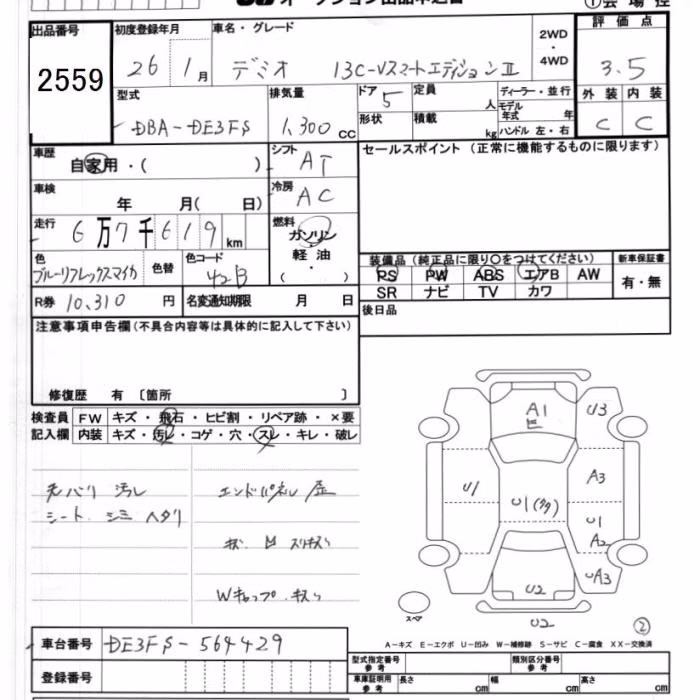 オークション出品申込書
① 会場控
出品番号 初度登録年月 車名・グレード 2WD・4WD 評価点
2559 26 1月 デミオ 13C-Vスマートエディション Ⅱ 3.5
型式 排気量 ドア 5 定員 人 ディーラー・並行 外装 内装
DBA-DE3FS 1,300 CC 形状 積載 kg モデル年式 年 ハンドル 左・右 C C
車歴 自家用・( ) シフト AT セールスポイント（正常に機能するものに限ります）
車検 年 月( 日) 冷房 AC
走行 6万7千619km 燃料 ガソリン 軽油 ( ・ )
装備品（純正品に限り○をつけてください） 新車保証書
色 ブルーリフレックスマイカ 色替 色コード 42B PS PW ABS エアB AW 有・無
SR ナビ TV カワ
R券 10,310 円 名変通知期限 月 日 後日品
注意事項申告欄（不具合内容等は具体的に記入して下さい）
修復歴 有 〔箇所 〕
検査員 FW キズ・飛石・ヒビ割・リペア跡・×要
記入欄 内装 キズ・汚レ・コゲ・穴・スレ・キレ・破レ
内バリ 汚レ エンドパネル 歪
シート シミ ヘタリ
キズ 凹 スリキズ
Wキャップ キズ
A1 E U3
U1 A3
U1(多) U1
A2
U2 UA3
スペア U2 ②
A-キズ E-エクボ U-凹み W-補修跡 S-サビ C-腐食 XX-交換済
車台番号 DE3FS-564429
型式指定番号 参考 類別区分番号 参考
登録番号 車庫証明用 参考 長さ cm 幅 cm 高さ cm